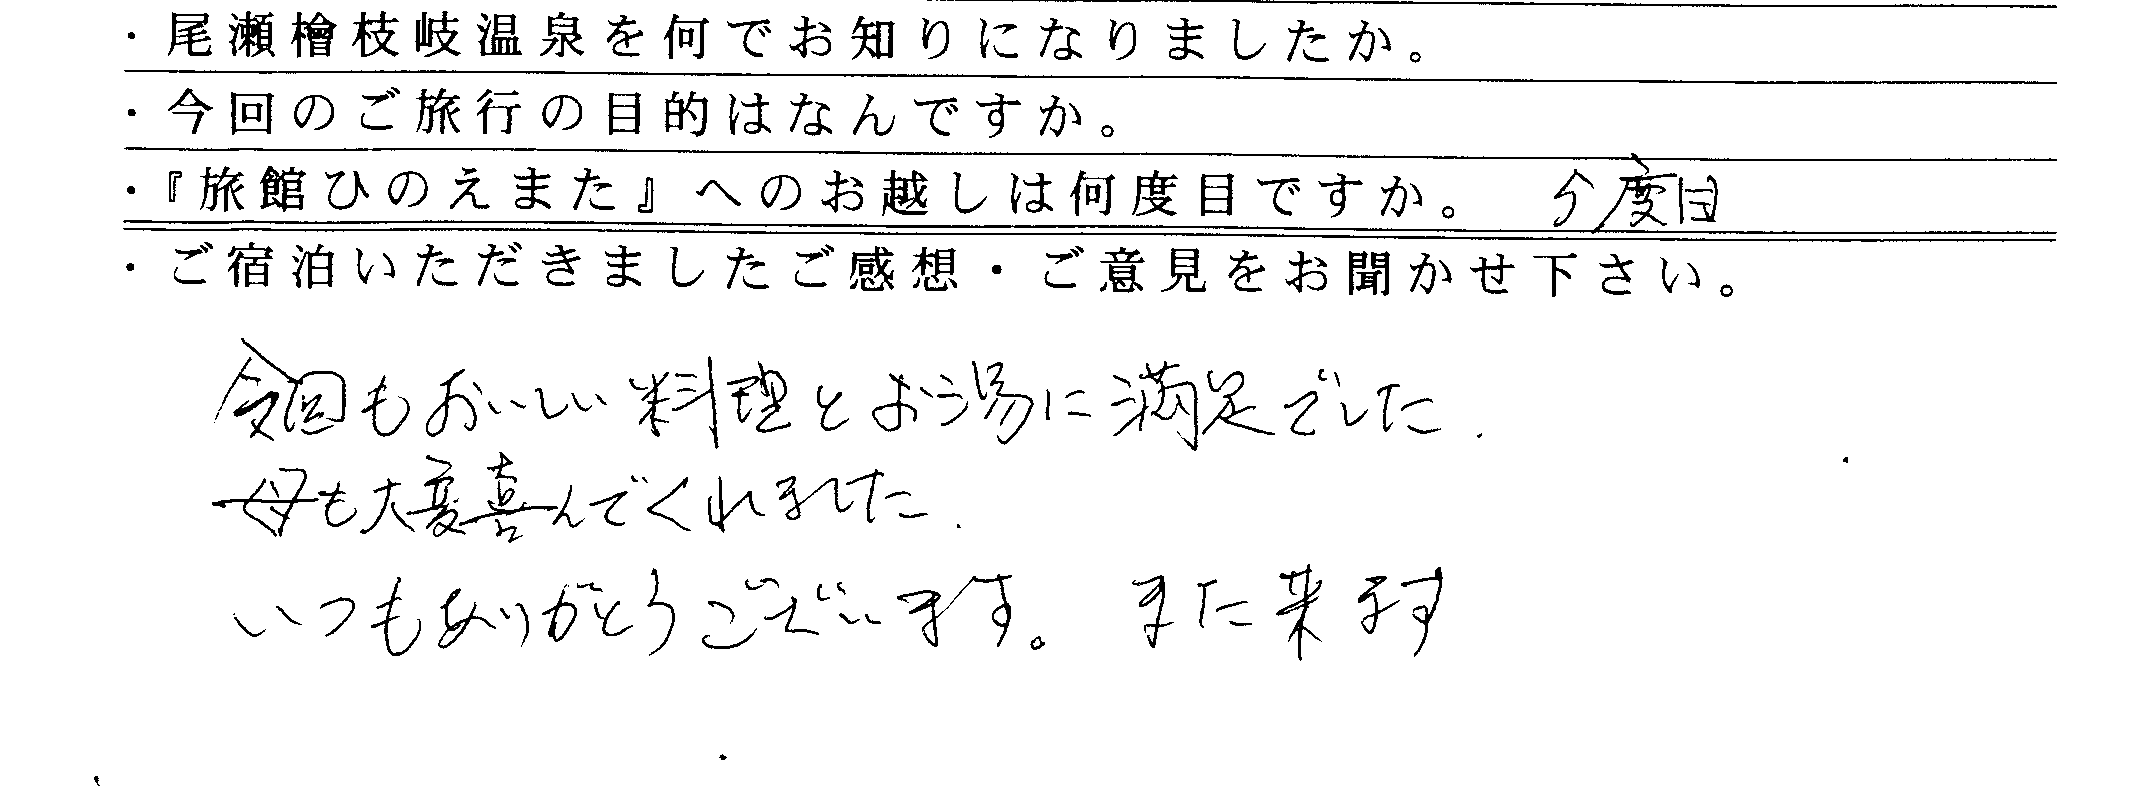 ・尾瀬檜枝岐温泉を何でお知りになりましたか。
・今回のご旅行の目的はなんですか。
・『旅館ひのえまた』へのお越しは何度目ですか。 度目
・ご宿泊いただきましたご感想・ご意見をお聞かせ下さい。
今回もおいしい料理とお湯に満足でした.
母も大変喜んでくれました.
いつもありがとうございます。 また来ます